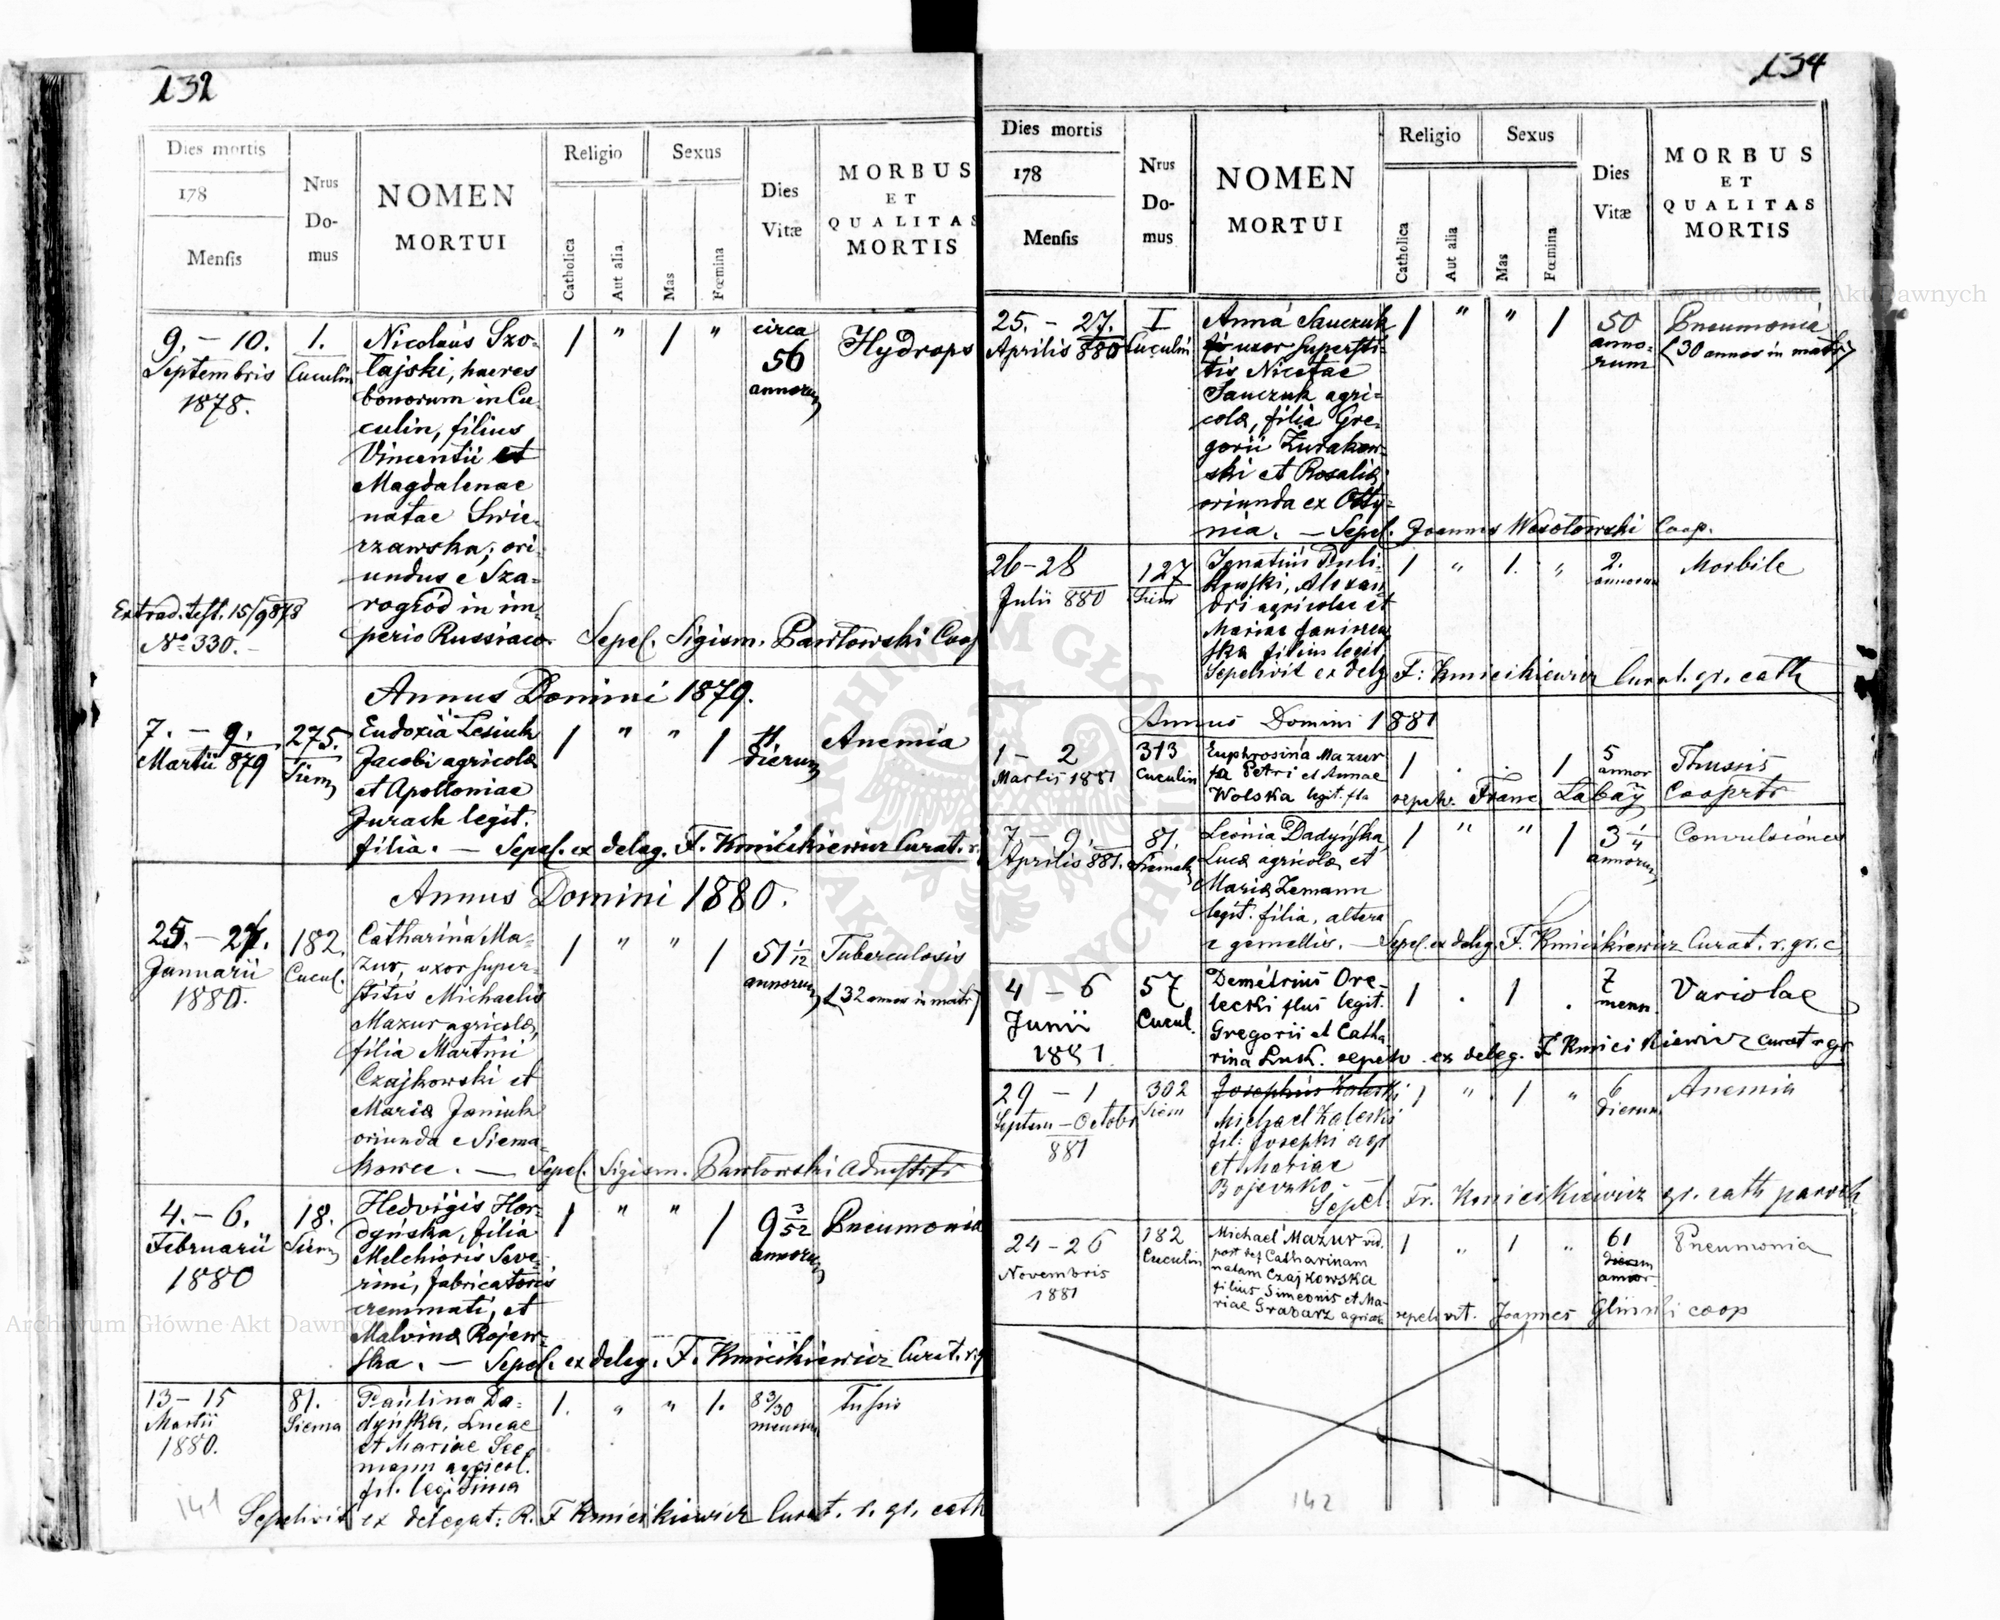 132
Dies mortis
178
Mensis
Nrus
Do-
mus
NOMEN
MORTUI
Religio
Catholica
Aut alia
Sexus
Mas
Fœmina
Dies
Vitæ
MORBUS
ET
QUALITAS
MORTIS
9. – 10.
Septembris
1878.
Extrad. test. 15/9 878
No 330. –
1.
Cuculin
Nicolaus Szo-
tajski, haeres
bonorum in Cu-
culin, filius
Vincentii et
Magdalenae
natae Swie-
rzawska, ori-
undus e Sza-
rogród in im-
perio Russiaco.
1 " 1 "
circa
56
annorum
Hydrops
Sepel. Sigism. Pawłowski Coop
Annus Domini 1879.
7. – 9.
Martii 879
275.
Siem
Eudoxia Lesiuk
Jacobi agricolæ
et Apolloniae
Jurach legit.
filia. – Sepel. ex deleg. F. Kmicikiewicz Curat. r.
1 " " 1
11
dierum
Anemia
Annus Domini 1880.
25. – 27.
Januarii
1880.
182.
Cucul.
Catharina Ma-
zur, uxor super-
stitis Michaelis
Mazur agricolæ,
filia Martini
Czajkowski et
Mariæ Janiuk
oriunda e Siema-
kowce. – Sepel. Sigism. Pawłowski Admstrtr
1 " " 1
51 1/12
annorum
Tuberculosis
(32 annos in matr)
4. – 6.
Februarii
1880
18.
Siem
Hedvigis Hor-
dyńska, filia
Melchioris Seve-
rini, fabricatoris
cremmati, et
Malvinæ Rojew-
ska. – Sepel. ex deleg. F. Kmicikiewicz Curat. r. g
1 " " 1
9 3/52
annorum
Pneumonia
13 – 15
Martii
1880.
81.
Siema
Paulina Da-
dyńska, Lucae
et Mariae See
mann agricol.
fil. legitima
1. " " 1.
8 3/30
mensium
Tussis
141
Sepelivit ex delegat: R. F Kmicikiewicz Curat. r. gr. cath
134
Dies mortis
178
Mensis
Nrus
Do-
mus
NOMEN
MORTUI
Religio
Catholica
Aut alia
Sexus
Mas
Fœmina
Dies
Vitæ
MORBUS
ET
QUALITAS
MORTIS
25. – 27.
Aprilis 880
I
Cuculin
Anna Sauczuk
uxor supersti-
tis Nicetae
Sauczuk agri-
colæ, filia Gre-
gorii Żurakow-
ski et Rosaliæ
oriunda ex Otty-
nia. – Sepel. Joannes Wesołowski Coop.
1 " " 1
50
anno-
rum
Pneumonia
(30 annos in matr)
26 – 28
Julii 880
127
Siem
Ignatius Puli-
kowski, Alexan
dri agricolae et
Mariae Janiszew
ska filius legit.
Sepelivit ex delg F: Kmicikiewicz Curat. gr. cath
1 " 1. "
2.
annorum
Morbile
Annus Domini 1881
1 – 2
Martis 1881
313
Cuculin
Euphrosina Mazur
fa Petri et Annae
Wolska legit. fla
1 . . 1
5
annor
Thussis
sepelv. Franc Labay Cooprtr
7 – 9.
Aprilis 881.
81.
Siemak
Leonia Dadyńska
Lucæ agricolæ et
Mariæ Zemann
legit. filia, altera
e gemellis. – Sepel. ex deleg. F. Kmicikiewicz Curat. r. gr. c.
1 " " 1
3 1/4
annorum
Convulsiones
4 – 6
Junii
1881
57
Cucul.
Demetrius Ore-
lecski flus legit.
Gregorii et Catha
rina Luk. sepelv ex deleg. F Kmicikiewicz curat r gr
1 . 1 .
7
mens.
Variolae
29 – 1
Septem – Octobr
881
302
Siem
Josephus Zaleski
Michael Zaleski
fil: Josephi agr
et Mariae
Bojeczko –
Sepel. Fr. Kmicikiewicz gr. cath paroch
1 " 1 "
6
dierum
Anemia
24 – 26
Novembris
1881
182
Cuculin
Michael Mazur vid.
post Catharinam
natam Czajkowska
filius Simeonis et Ma-
riae Grabarz agricolæ
sepelivit. Joannes Glinski coop
1 " 1 "
61
dierum
annor
Pneumonia
142
Archiwum Główne Akt Dawnych
Archiwum Główne Akt Dawnych
ARCHIWUM GŁÓWNE AKT DAWNYCH